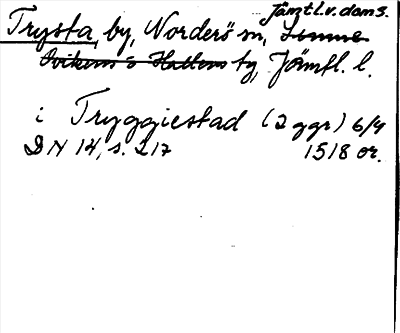 Jämtl. v. doms.
Trysta, by, Norderö sn,
Ovikens o Hallens tg, Jämtl. l.
i Tryggiestad (2 ggr) 6/4
DN 14, s. 217 1518 or.